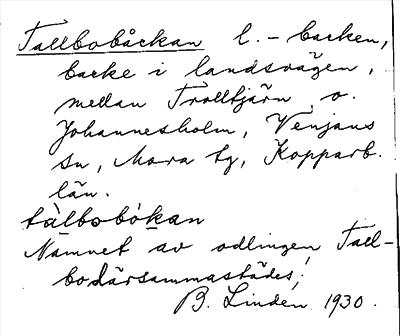 Tallbobåckan l. -backen,
backe i landsvägen,
mellan Trolltjärn o.
Johannesholm, Venjans
sn, Mora tg, Kopparb.
län.
tàlbobòkan
Namnet av odlingen Tall-
bo därsammastädes,
B. Linden 1930.